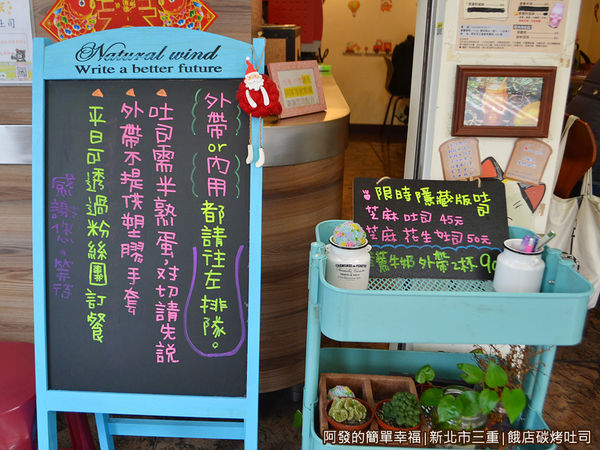 Natural wind
Write a better future
外帶or內用
都請往左排隊。
吐司需半熟蛋、對切請先說
外帶不提供塑膠手套
平日可透過粉絲團訂餐
感謝您。
限時隱藏版吐司
芝麻吐司 45元
芝麻花生吐司50元
阿發的簡單幸福|新北市三重|餓店碳烤吐司